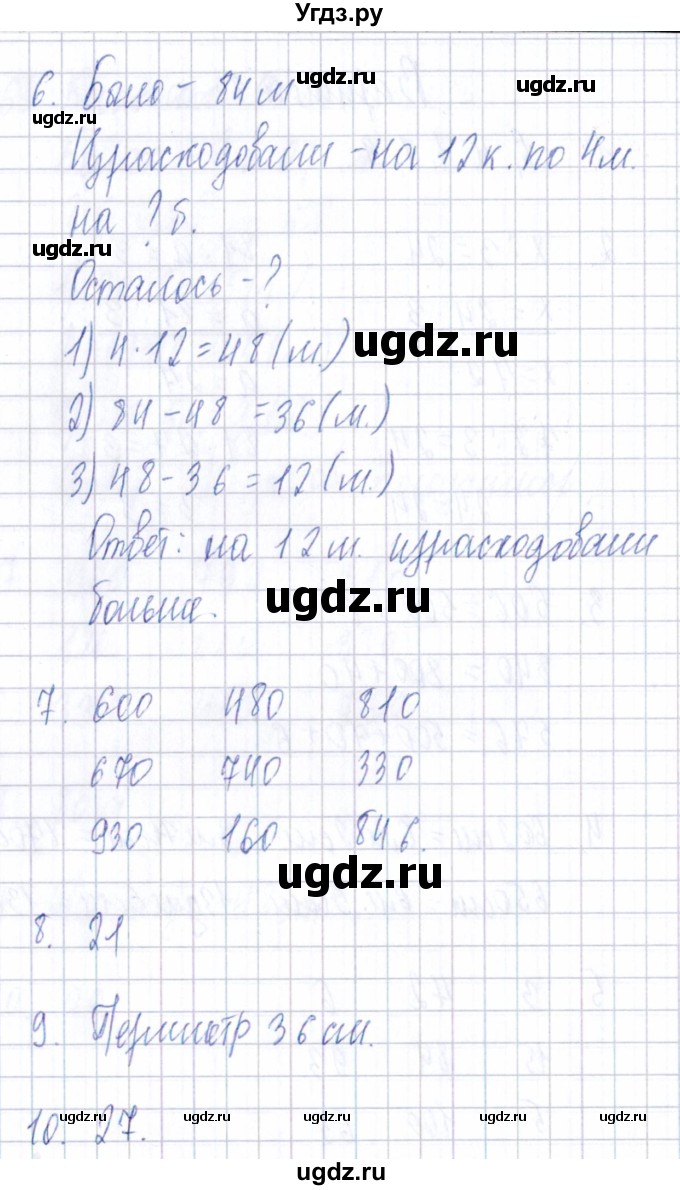 Угдз.ру
6. Было - 84 м
ugdz.ru
ugdz.ru
ugdz.ru
Израсходовали - на 12 к. по 4 м.
на ? б.
ugdz.ru
Осталось - ?
1) 4 · 12 = 48 (м.)
ugdz.ru
2) 84 - 48 = 36 (м.)
3) 48 - 36 = 12 (м.)
Ответ: на 12 м. израсходовали
больше.
ugdz.ru
7. 600 480 810
670 740 330
930 160 846.
ugdz.ru
8. 21
9. Периметр 36 см.
10. 27.
ugdz.ru ugdz.ru ugdz.ru ugdz.ru ugdz.ru
ugdz.ru